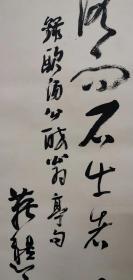 落而石出者
錄歐陽公醉翁亭句